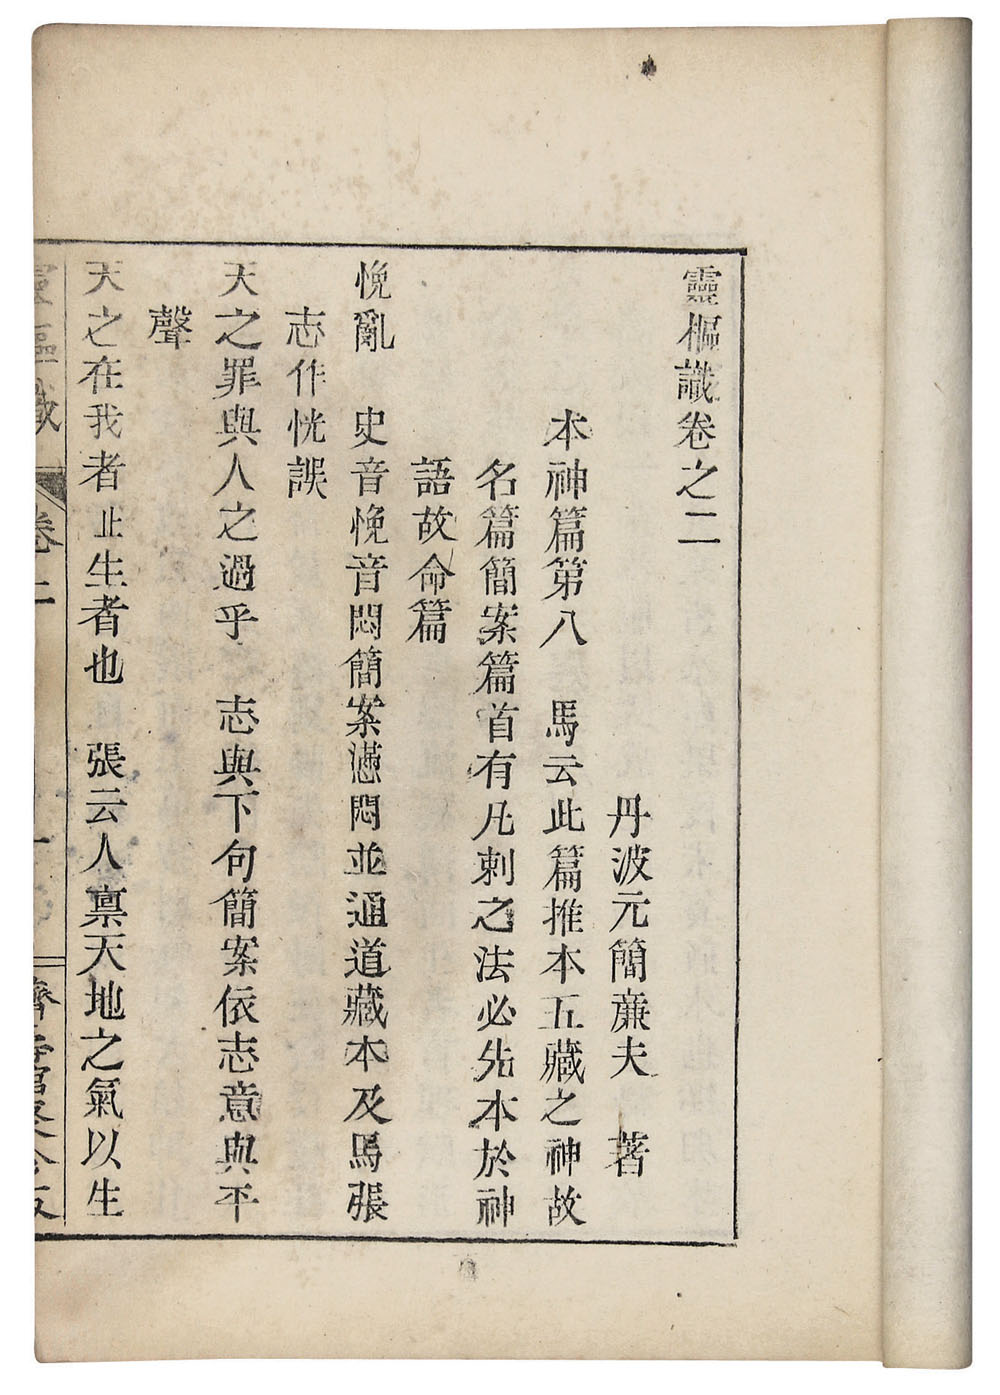 靈樞識卷之二
丹波元簡廉夫　著
本神篇第八　馬云此篇推本五藏之神故
名篇簡案篇首有凡刺之法必先本於神
語故命篇
悗亂　史音悗音悶簡案懣悶並通道藏本及馬張
志作恍誤
天之罪與人之過乎　志與下句簡案依志意與平
聲
天之在我者止生者也　張云人禀天地之氣以生
靈樞識　卷二